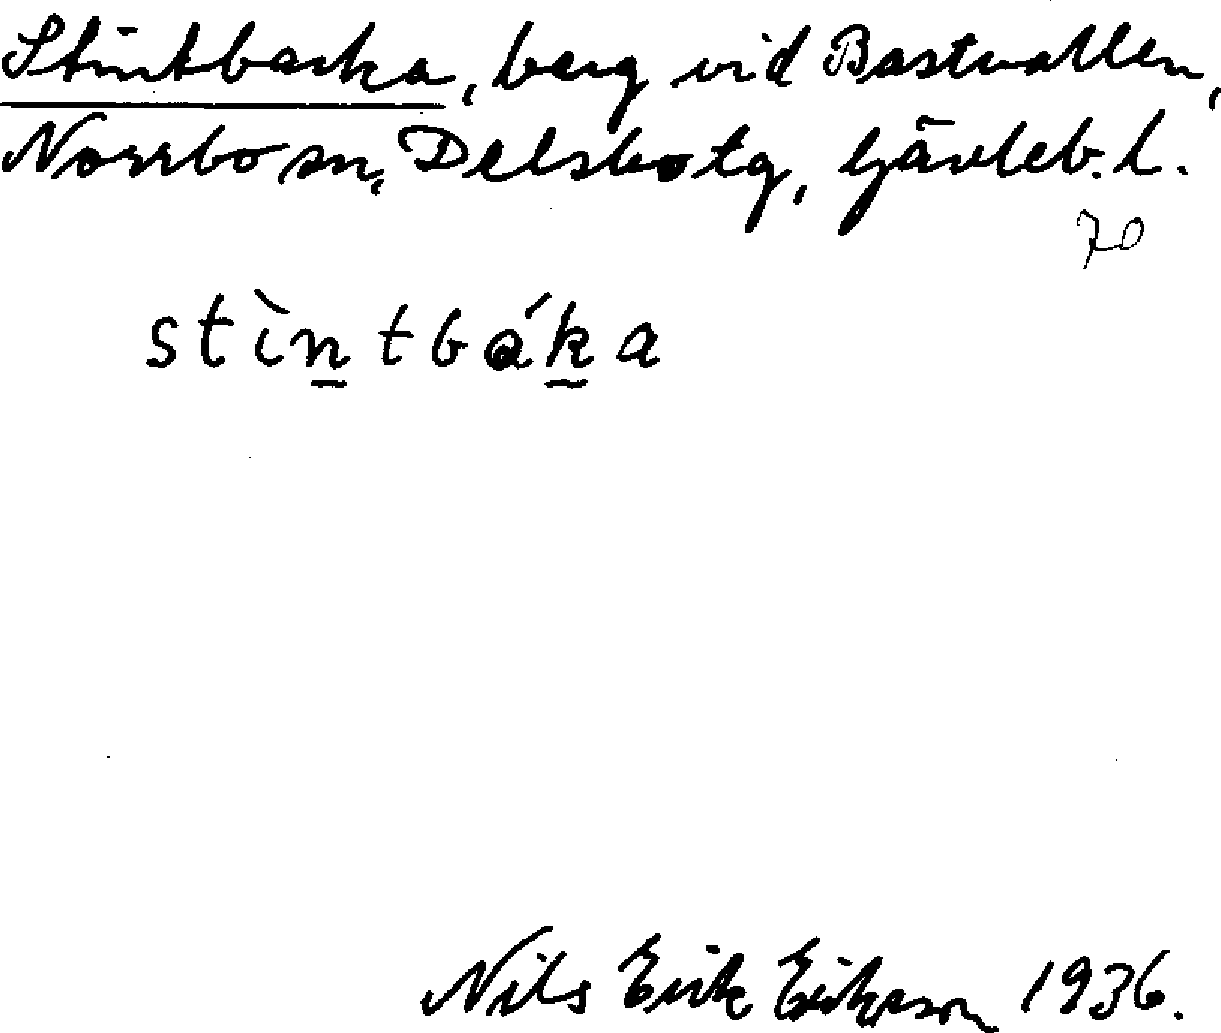 Stintbacka, berg vid Bastvallen,
Norrbo sn, Delsbo tg, Gävleb. l.
70
stìn̲tbák̲a
Nils Erik Erikson 1936.